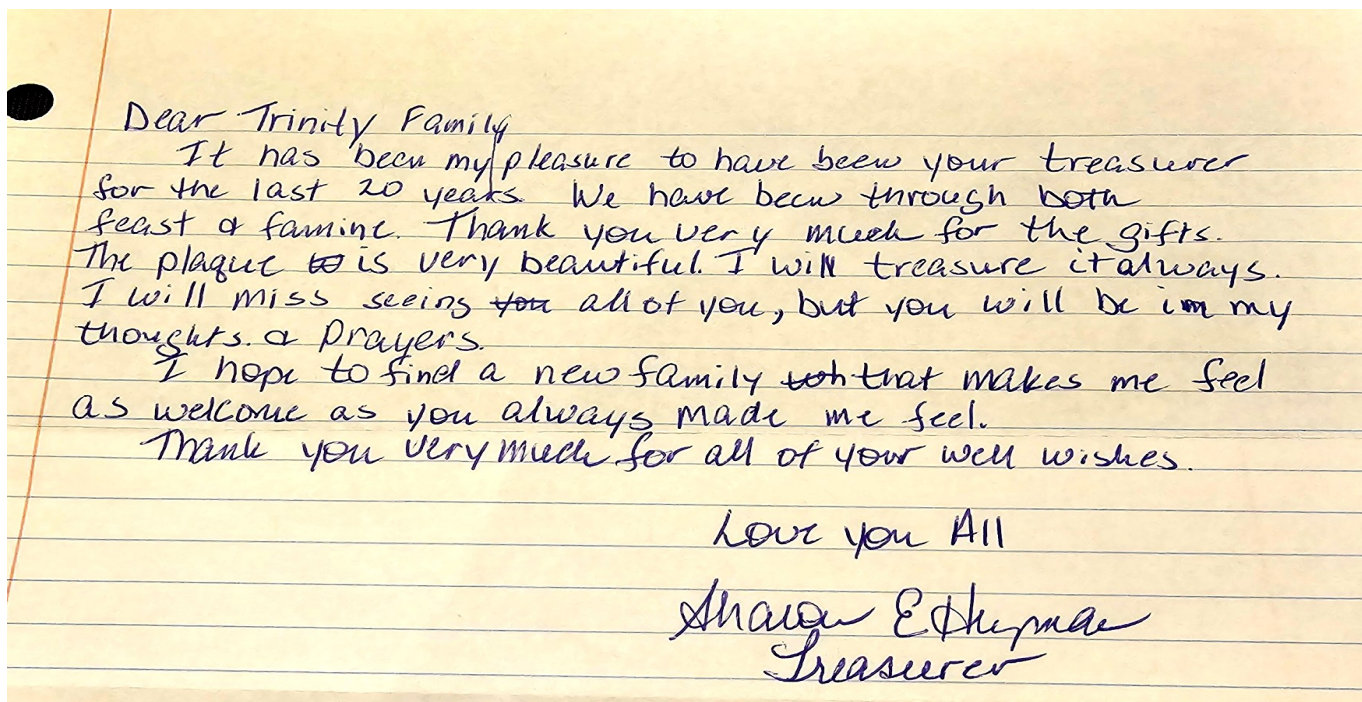 Dear Trinity Family
It has been my pleasure to have been your treasurer
for the last 20 years. We have been through both
feast & famine. Thank you very much for the gifts.
The plaque is very beautiful. I will treasure it always.
I will miss seeing you all of you, but you will be in my
thoughts. & Prayers.
I hope to find a new family that makes me feel
as welcome as you always made me feel.
Thank you very much for all of your well wishes.
Love you All
Sharon E
Treasurer